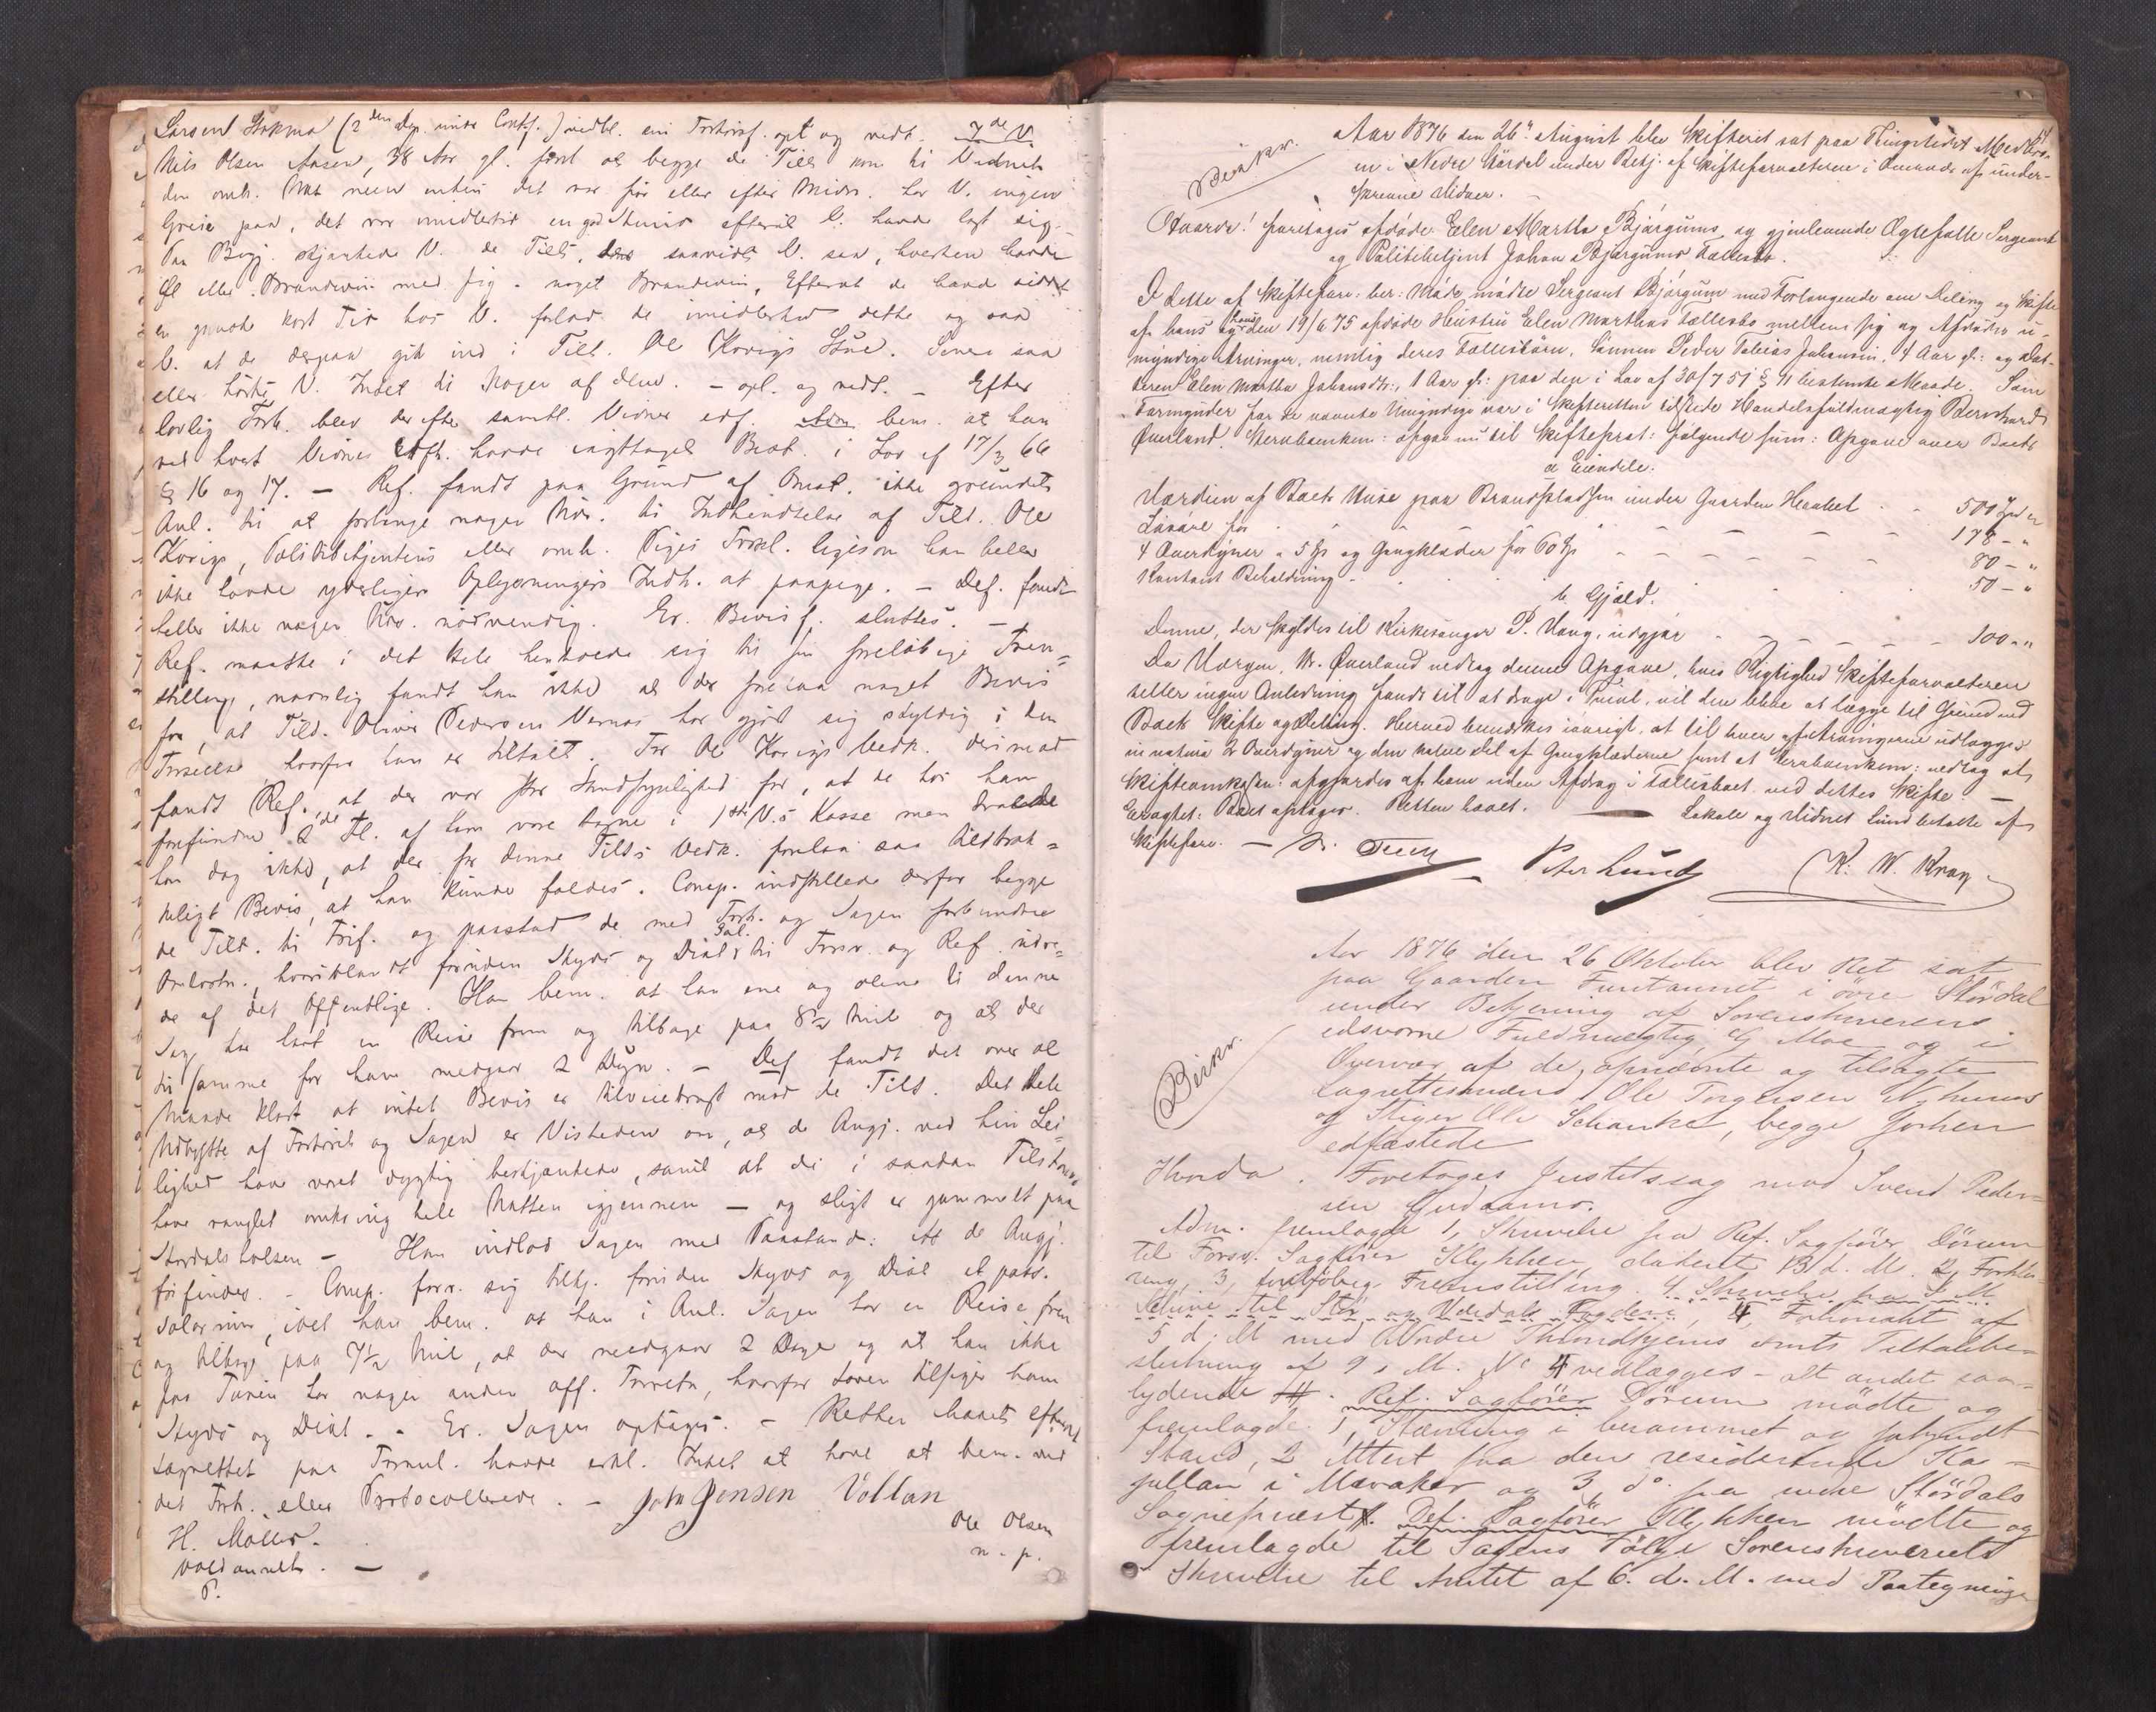 Larsens Stokmo (2den Dep. under Contf.) vedbl. sin Forkl. opl. og vedt. 7de V.
Nils Olsen Aasen, 38 Aar gl. først at begge de Tilt. kom til Vidnet
den omh. Nat men enten det var før eller efter Midn. har V. ingen
Greie paa, det var imidlertid en god Stund efterat V. havde lagt sig.
Paa Begj. skjænkede V. de Tilt., der saavidt V. saa, hverken havde
Øl eller Brændevin med sig, noget Brændevin. Efterat de havde siddet
en ganske kort Tid hos V. forlod de imidlertid dette og saa
V. at de derpaa gik ind i Tilt. Ole Kovigs Stue. Senere saa
eller hørte V. Intet til Nogen af dem. - opl. og vedt. - Efter
lovlig Forb. blev derefter samtl. Vidner edf. Adm. bem. at han
ved hvert Vidnes Edfl. havde iagttaget Best. i Lov af 17/3 66
§ 16 og 17. - Ref. fandt paa Grund af Omst. ikke grundet
Anl. til at forlange nogen Uds. til Indhentelse af Tilt. Ole
Kovigs, Politibetjentens eller omh. Piges Forkl. ligesom han heller
ikke havde yderligere Oplysningers Indh. at paapege. - Def. fandt
heller ikke nogen Uds. nødvendig. Er. Bevisf. sluttes. -
Ref. maatte i det Hele henholde sig til sin foreløbige Frem=
stilling, navnlig fandt han ikke at der forelaa noget Bevis
for, at Tilt. Oliver Pedersen Vernes har gjort sig skyldig i den
Forseelse, hvorfor han er tiltalt. For Ole Kovigs Vedk. derimod
fandt Ref., at der var stor Sandsynlighed for, at de hos ham
forefundne 2de Fl. af ham vare tagne i 1ste V.s Kasse men troede
han dog ikke, at der for denne Tilt.s Vedk. forelaa saa tilstræk=
keligt Bevis, at han kunde fældes. Comp. indstillede derfor begge
de Tilt. til Frif. og paastod de med Forh. og Sagen forbundne
Omkostn., hvoriblandt foruden Skyds og Diæt Sal. til Forsv. og Ref. udre=
de af det Offentlige. Han bem. at han ene og alene i denne
Sag har havt en Reise frem og tilbage paa 8½ Mil og at der
til samme for ham medgaar 2 Døgn. - Def. fandt det over al
Maade klart at intet Bevis er tilveiebragt mod de Tilt. Det hele
Udbytte af Forhørt og Sagen er Visheden om, at de Angj. ved hin Lei=
lighed have været dygtig beskjænkede, samt at de i saadan Tilstand
have ranglet omkring hele Natten igjennem - og sligt er gammelt paa
Størdalshalsen - Han indlod Sagen med Paastand: At de Angj.
frifindes. - Comp. forv. sig tillig. foruden Skyds og Diæt et pass.
Salarium, idet han bem. at han i Anl. Sagen har en Reise frem
og tilbage paa 7½ Mil, at der medgaar 2 Dage og at han ikke
paa Turen har nogen anden off. Forretn., hvorfor Loven tilsiger ham
Skyds og Diæt. - Er. Sagen optages. - Retten hævet efterat
Lagrettet paa Formul. havde erkl. Intet at have at bem. ved
det Forh. eller Protocollerede. - John Jensen Vollan
H. Møller. Ole Olsen
Voldsaunet. - m. p.
P.
Birkr.
Aar 1876 den 26de August blev Skifteret sat paa Thingstedet Medbro-
en i Nedre Størdal under Betj. af Skifteforvalteren i Overvær af under-
skrevne Vidner.
Hvorda! foretages afdøde Elen Martha Bjørgums og gjenlevende Ægtefælle Sergeant
og Politibetjent Johan Bjørgums Fællesbo.
I dette af Skifteforv. ber. Møde mødte Sergeant Bjørgum med Forlangende om Deling og Skifte
af hans og hans den 19/6 75 afdøde Hustru Elen Marthas Fællesbo mellem sig og Afdødes u-
myndige Arvinger, nemlig deres Fællesbørn, Sønnen Peder Tobias Johansen, 4 Aar gl. og Dat-
teren Elen Martha Johansdtr., 1 Aar gl. paa den i Lov af 30/7 51 § 11 bestemte Maade. Som
Formynder for de nævnte Umyndige var i Skifteretten tilstede Handelsfuldmægtig Bernhard
Øverland. Skrvbemkm. opgav nu til Skifteprot. følgende sum. Opgave over Boets
a Eiendele.
Værdien af Boets Huse paa Brandpladsen under Gaarden Hæakel - 500 Kr "
Løsøre for - 178 - "
4 Overdyner a 5 Kr og Gangklæder for 60 Kr - 80 - "
Kontant Beholdning - 50 - "
b. Gjæld.
Denne, der skyldes til Kirkesanger P. Vang, udgjør - 100 - "
Da Værgen, Hr. Øverland vedtog denne Opgave, hvis Rigtighed Skifteforvalteren
heller ingen Anledning fandt til at drage i Tvivl, vil den blive at lægge til Grund ved
Boets Skifte og Deling. Herved bemærkes iøvrigt, at til hver af Arvingerne udlægges
in natura 2 Overdyner og den halve Del af Gangklæderne samt at Skrvbemkm. vedtog at
Skifteomkostn. afgjordes af ham uden Afdrag i Fællesboet ved dettes Skifte. -
Eragtet: Boet optages. Retten hævet. - Lokale og Vidnet Lund betalte af
Skifteforv. - Peter Lund K. W. Krag
Birkr.
Aar 1876 den 26 Oktober blev Ret sat
paa Gaarden Funtaunet i øvre Størdal
under Betjening af Sorenskriverens
edsvorne Fuldmægtig G Moe og i
Overvær af de opnævnte og tilsagte
Lagrettesmænd Ole Torgersen Nyhuus
og Stiger Ole Schanke, begge forhen
edfæstede
Hvorda. Foretoges Justitssag mod Svend Peder=
sen Gudaamo.
Adm. fremlagde 1, Skrivelse fra Ref. Sagfører Dørum
til Forsv. Sagfører Klykken, dateret 13 d. M. 2, Forhø
reng, 3, foreløbig Fremstilling. 4. Skrivelse fra S M
til Stør og Værdals Fogderi, 4, Forhørsakt af
5 d. M med Nordre Throndhjems Amts Tiltalebe=
slutning af 9 s. M. No 4 vedlægges - alt andet saa=
lydende #. Ref. Sagfører Dørum mødte og
fremlagde 1, Stævning i berammet og forkyndt
Stand, 2 Attest fra den residerende Ka=
pellan i Meraker og 3, do fra nedre Størdals
Sogneprest #. Def. Sagfører Klykken mødte og
fremlagde til Sagens Følge Sorenskriveriets
Skrivelse til Amtet af 6. d. M. med Paategninger